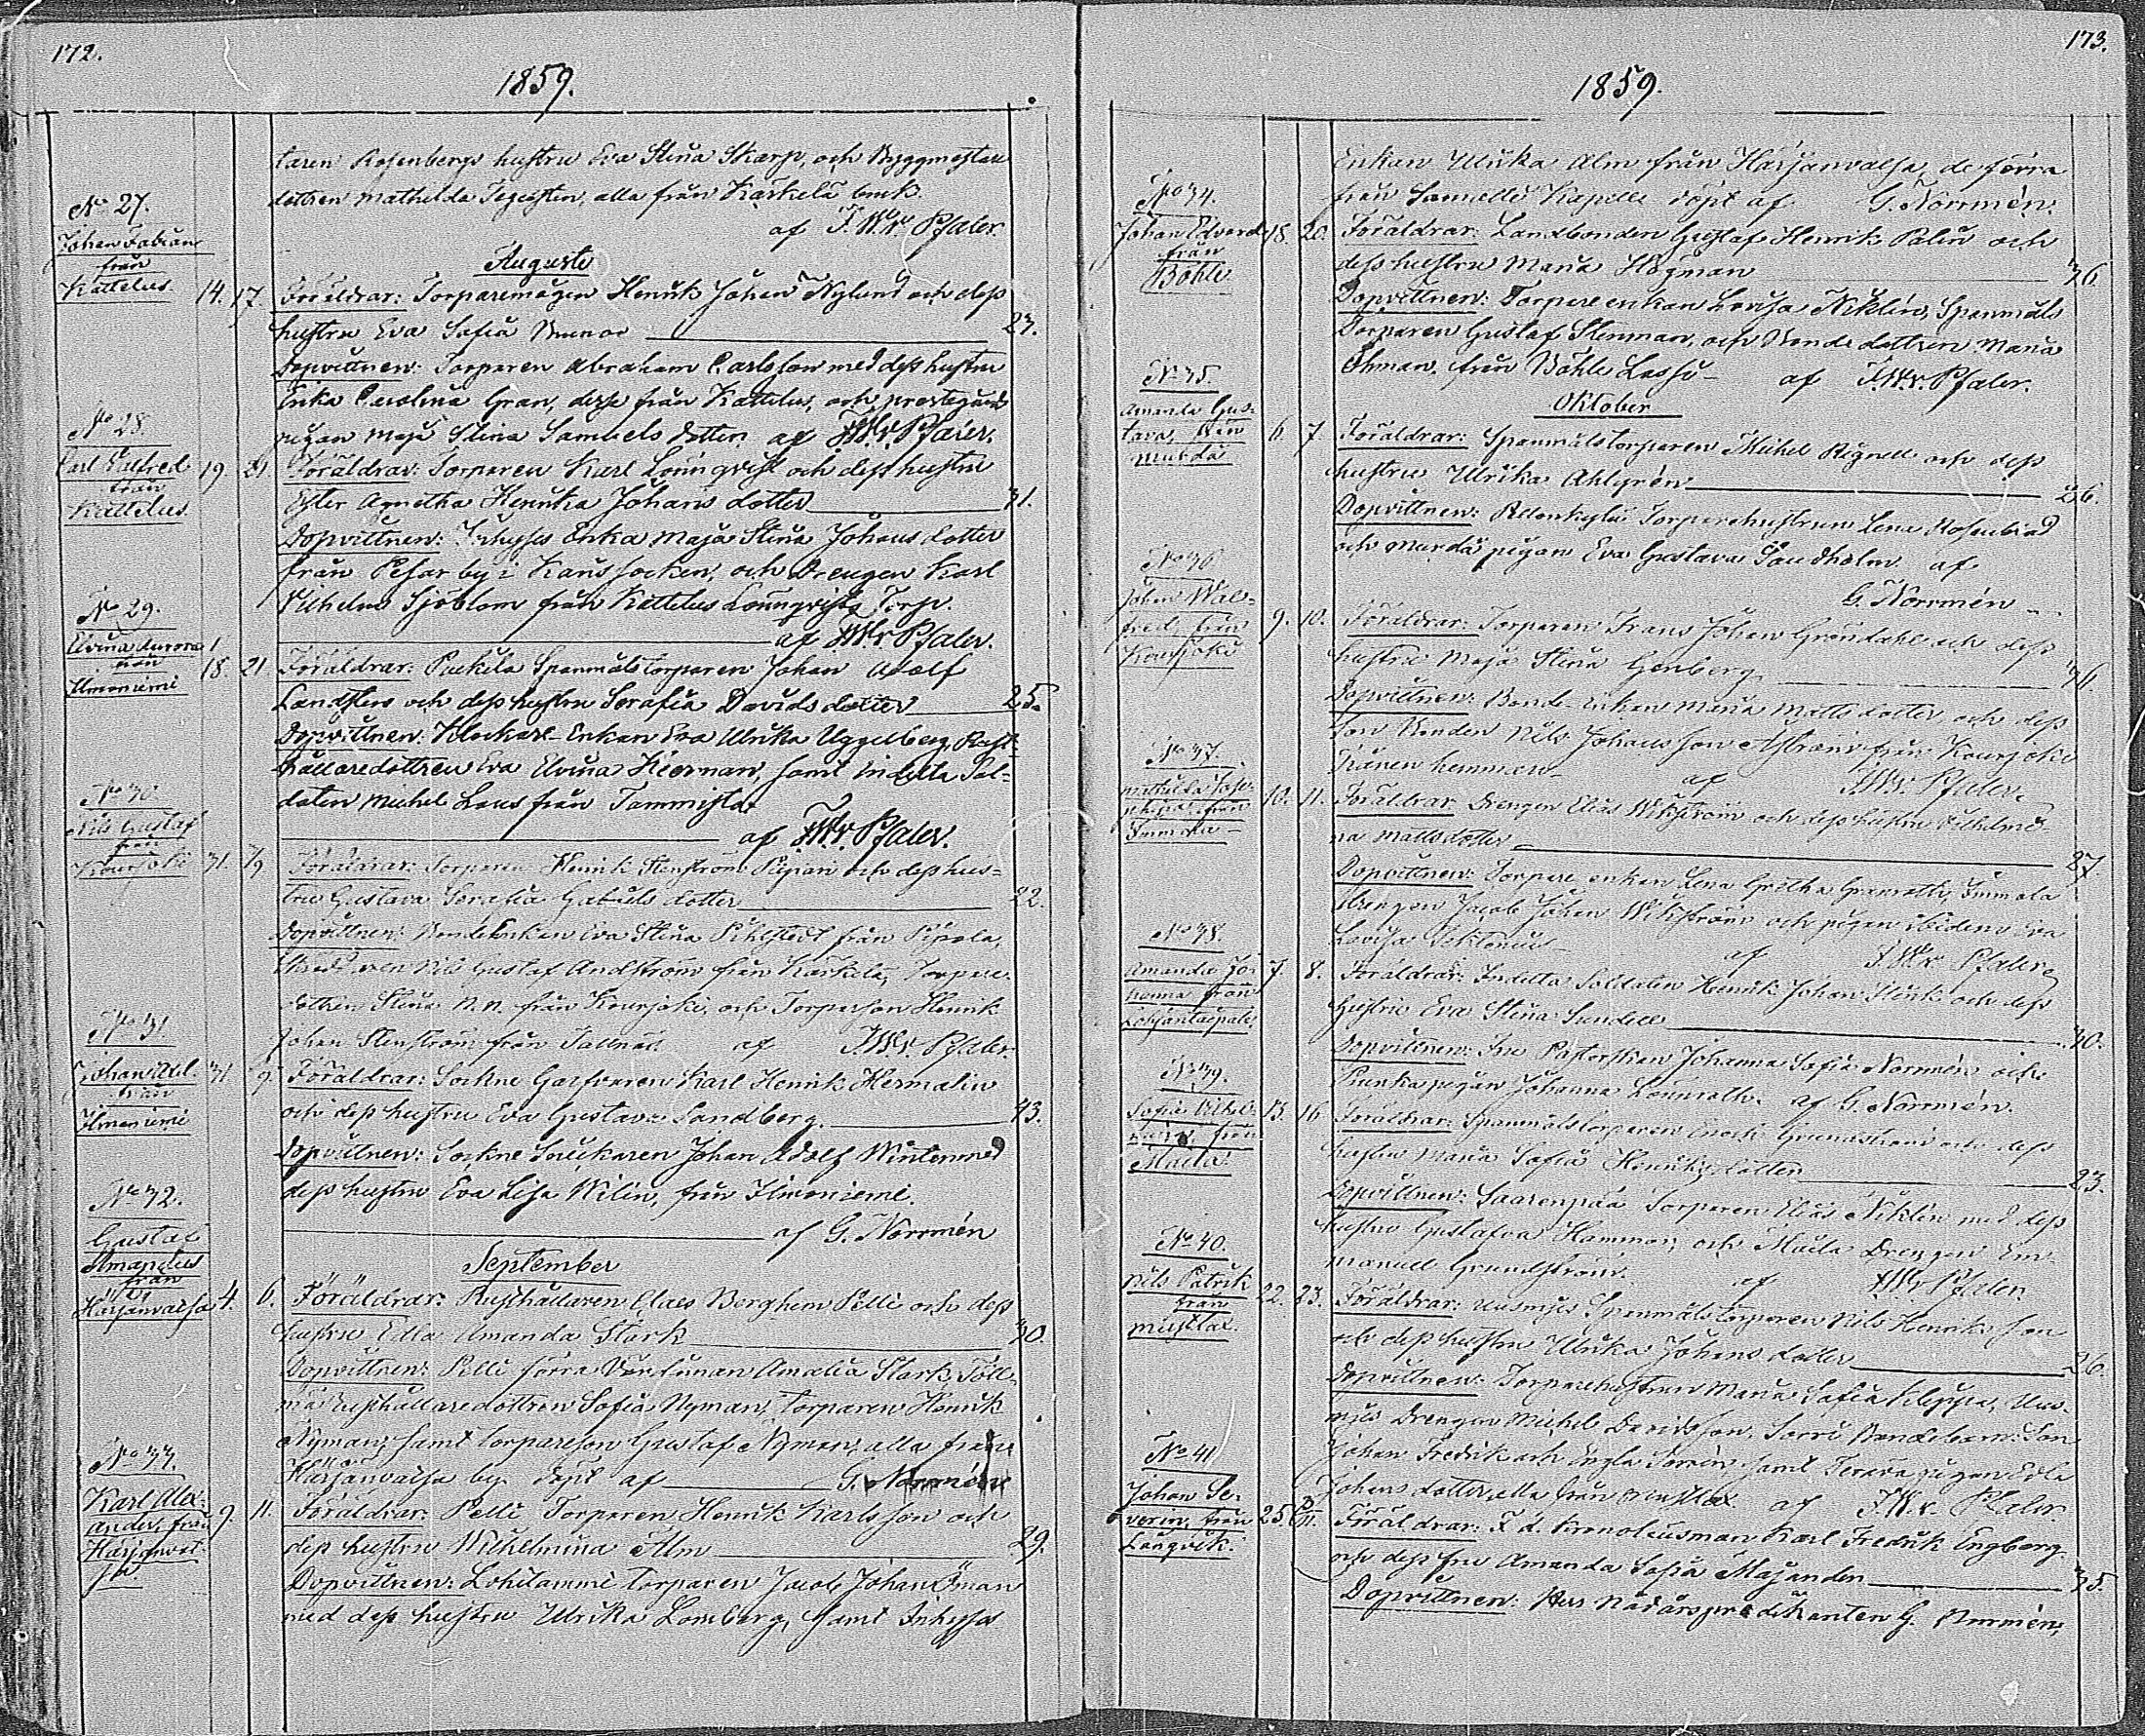 172.
1859.
taren Rosenbergs hustru Eva Stina Skarp, och Byggmästare
dottren Mathilda Tegersten, alla från Karkela bruk.
af F.W.v. Pfaler.
Augusti
No 27.
Johan Fabian
från
Kattelus 14. 17. Föräldrar: Torparemågen Henrik Johan Nylund och dess
hustru Eva Sofia 23.
Dopvittnen: Torparen Abraham Carlsson med dess hustru
Erika Carolina Gran, desse från Kattelus, och prestegårds
pigan Maja Stina Samuels dotter af F.W.v. Pfaler.
No 28.
Carl Valfred
från
Kattelus 19. 21. Föräldrar: Torparen Karl Lönnqvist och dess hustru
Ester Agnetha Henrika Johans dotter 31.
Dopvittnen: Inhyses Enka Maja Stina Johans dotter
från Pesar by i Karis socken, och Drengen Karl
Vilhelm Sjöblom från Kattelus Lönnqvists Torp.
af F.W.v. Pfaler.
No 29.
Elvina Aurora
från
Ilmoniemi 18. 21. Föräldrar: Puckila Spanmålstorparen Johan Adolf
Landsten och dess hustru Serafia Davids dotter 25.
Dopvittnen: Klockare Enkan Eva Ulrika Uggelberg, Rust-
hållaredottren Eva Elvina Hierman, samt Indelta Sol=
daten Michel Laus från Tammisto.
af F.W.v. Pfaler.
No 30
Nils Gustaf
från
Kourjoki 31. 7/9 Föräldrar: Torparen Henrik Stenström Piipari och dess hus=
tru Gustava Serafia Gabriels dotter 22.
Dopvittnen: Bondeenkan Eva Stina Pihlstedt från Pipola,
Nils Gustaf Andström från Karkela, Torpare
dottren Stina N.N. från Kourjoki, och Torparson Henrik
Johan Stenström från Tallnäs af F.W.v. Pfaler.
No 31
Johan Axel
från
Ilmoniemi 31 9. Föräldrar: Sockne Garfvaren Karl Henrik Hermalin
och dess hustru Eva Gustava Sandberg. 43.
Dopvittnen: Sockne Snickaren Johan Adolf Winter med
dess hustru Eva Lisa Wilin, från Ilmoniemi.
af G. Norrmén
September
No 32.
Gustaf
Amandus
från
Härjänvalsa 4. 6. Föräldrar: Rusthållaren Claes Berghem Pelli och dess
hustru Edla Amanda Stark 30.
Dopvittnen: Pelli förra Värdinnan Amalia Stark, Töll-
mä Rusthållaredottren Sofia Nyman, torparen Henrik
Nyman, samt torpareson Gustaf Nyman, alla från
Härjänvalsa by. döpt af G. Norrmén
No 33.
Karl Alex-
ander, från
Härjänval-
sa 9. 11. Föräldrar: Pelli Torparen Henrik Karlsson och
dess hustru Wilhelmina Alm 29.
Dopvittnen: Lohilammi torparen Jacob Johan Öman
med dess hustru Ulrika Lomberg, samt Inhyses
173.
1859.
Enkan Ulrika Alm från Härjänvalsa, de förra
från Sammatti Kapell döpt af G. Norrmén.
No 34.
Johan Edvard
från
Böhle 18. 20. Föräldrar: Landbonden Gustaf Henrik Palin och
dess hustru Maria Högman 36.
Dopvittnen: Torpareenkan Lovisa Niklin, Spanmåls
Torparen Gustaf Stenman, och Bonde dottren Maria
Öhman, från Böhle af F.W.v. Pfaler.
Oktober
No 35.
Amanda Gus-
tava, från
6. 7. Föräldrar: Spanmålstorparen Michel Rignell och dess
hustru Ulrika Ahlgrén 26.
Dopvittnen: Torparehustrun Lena Rosenblad
och pigan Eva Gustava Sandholm af
G. Norrmén
No 36
Johan Wal-
fred, från
Kourjoki 9. 10. Föräldrar: Torparen Frans Johan Gröndahl och dess
hustru Maja Stina Genberg 36.
Dopvittnen: Bonde Enkan Maria Matts dotter och dess
son Bonden Nils Johansson från Kourjoki
hemman af F.W.v. Pfaler.
No 37.
Mathilda Jose-
phina från
Immola 10. 11. Föräldrar: Drengen Elias Wikström och dess hustru Vilhelmi-
na Mattsdotter 27.
Dopvittnen: Torpare enkan Lena Gretha Granroth, Immola
drengen Jacob Johan Wikström och pigan ibidem Eva
Lovisa af F.W.v. Pfaler
No 38.
Amanda Jo-
hanna från
Lohjantaipale 7. 8. Föräldrar: Indelta Soldaten Henrik Johan Stönk och dess
hustru Eva Stina Sundell 40.
Dopvittnen: Fru Pastorskan Johanna Sofia Norrmén och
pigan Johanna Lönnroth. af G. Norrmén.
No 39.
Sofia Vilhel-
mina från
Maila 13. 16 Föräldrar: Spanmålstorparen Enoch Grundström och dess
hustru Maria Sofia Henriks dotter 23.
Dopvittnen: Saarenpää Torparen Elias Niklén med dess
hustru Gustafva Hamman, och Maila Drengen Em-
manuel Grundström. af F.W.v. Pfaler.
No 40.
Nils Patrik
från
22. 23. Föräldrar: Spanmålstorparen Nils Henriksson
och dess hustru Ulrika Johans dotter 26.
Dopvittnen: Torparehustrun Maria Sofia
Drengen Michel Davidsson, Sorri Bondebarn: Son
Johan Fredrik och Engla Sorrén, samt pigan Edla
Johans dotter, alla från af F.W.v. Pfaler
No 41
Johan Se-
verin, från
Långvik. 25. Föräldrar: F.d. Kronolänsman Karl Fredrik Engberg
och dess fru Amanda Sofia Majanden 35.
Dopvittnen: Herr Nådårspredikanten G. Norrmén,